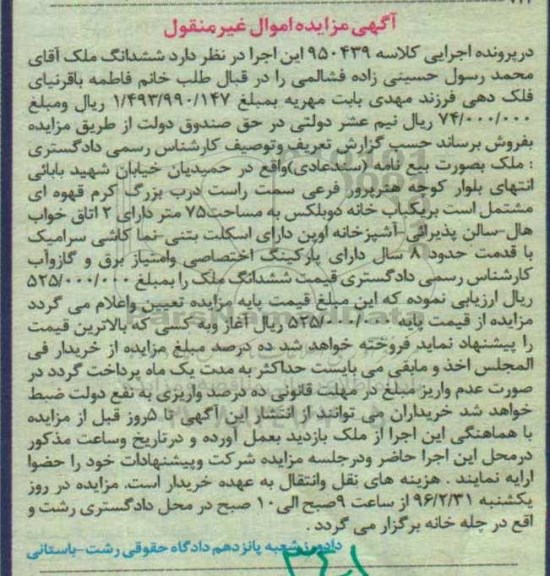 آگهی مزایده اموال غیرمنقول
درپرونده اجرایی کلاسه ۹۵۰۴۳۹ این اجرا در نظر دارد ششدانگ ملک آقای
محمد رسول حسینی زاده فشالمی را در قبال طلب خانم فاطمه باقرنیای
فلک دهی فرزند مهدی بابت مهریه بمبلغ ۱/۴۹۳/۹۹۰/۱۴۷ ریال ومبلغ
۷۴/۰۰۰/۰۰۰ ریال نیم عشر دولتی در حق صندوق دولت از طریق مزایده
بفروش برساند حسب گزارش تعریف وتوصیف کارشناس رسمی دادگستری
: ملک بصورت بیع نامه (سندعادی)واقع در حمیدیان خیابان شهید بابائی
انتهای بلوار کوچه هنرپرور فرعی سمت راست درب بزرگ کرم قهوه ای
مشتمل است بریکباب خانه دوبلکس به مساحت۷۵ متر دارای ۲ اتاق خواب
هال-سالن پذیرائی-آشپزخانه اوپن دارای اسکلت بتنی-نما کاشی سرامیک
با قدمت حدود ۸ سال دارای پارکینگ اختصاصی وامتیاز برق و گازوآب
کارشناس رسمی دادگستری قیمت ششدانگ ملک را بمبلغ ۵۲۵/۰۰۰/۰۰۰
ریال ارزیابی نموده که این مبلغ قیمت پایه مزایده تعیین واعلام می گردد
مزایده از قیمت پایه ۵۲۵/۰۰۰/۰۰۰ ریال آغاز وبه کسی که بالاترین قیمت
را پیشنهاد نماید فروخته خواهد شد ده درصد مبلغ مزایده از خریدار فی
المجلس اخذ و مابقی می بایست حداکثر به مدت یک ماه پرداخت گردد در
صورت عدم واریز مبلغ در مهلت قانونی ده درصد واریزی به نفع دولت ضبط
خواهد شد خریداران می توانند از انتشار این آگهی تا ۵روز قبل از مزایده
با هماهنگی این اجرا از ملک بازدید بعمل آورده و درتاریخ وساعت مذکور
درمحل این اجرا حاضر ودرجلسه مزایده شرکت وپیشنهادات خود را حضوا
ارایه نمایند . هزینه های نقل وانتقال به عهده خریدار است. مزایده در روز
یکشنبه ۹۶/۲/۳۱ از ساعت ۹صبح الی۱۰ صبح در محل دادگستری رشت و
اقع در چله خانه برگزار می گردد .
شعبه پانزدهم دادگاه حقوقی رشت-باستانی
ParsNamadData